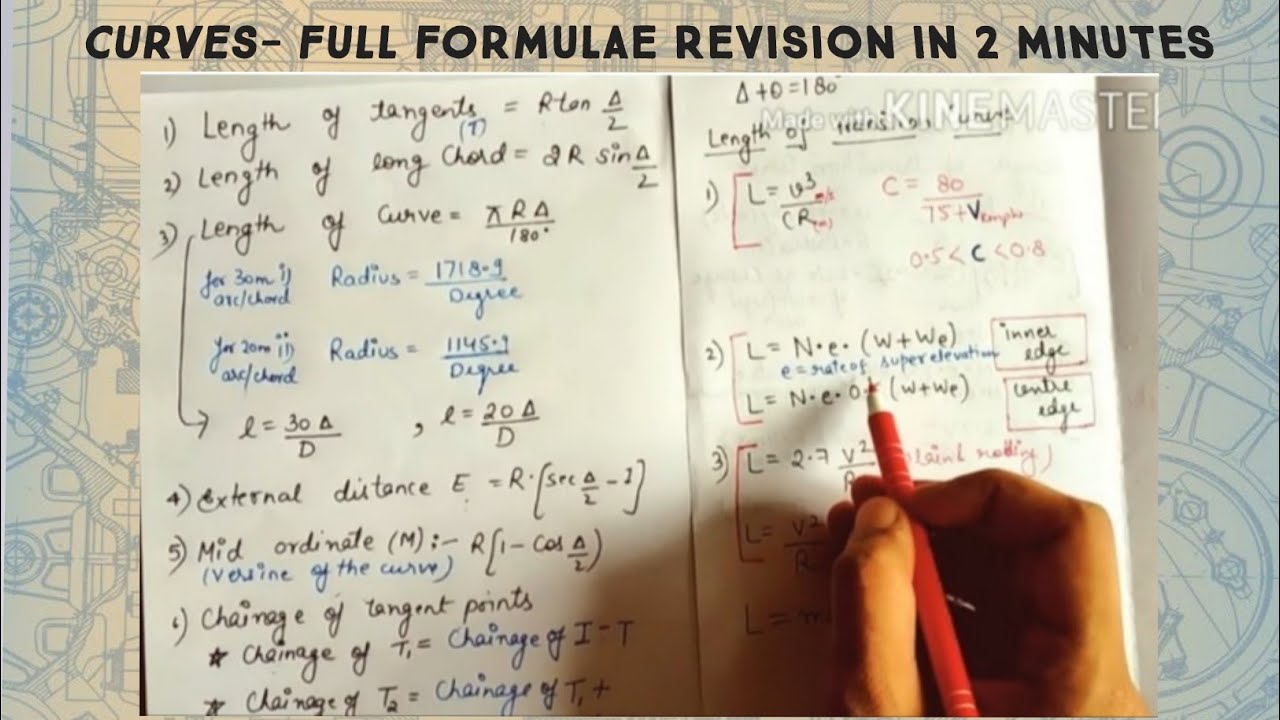 CURVES- FULL FORMULAE REVISION IN 2 MINUTES
1) Length of tangents (T) = R tan Δ/2
2) Length of long Chord = 2R sin Δ/2
3) Length of Curve = πRΔ/180°
for 30m arc/chord i) Radius = 1718.9/Degree
for 20m arc/chord ii) Radius = 1145.9/Degree
l = 30Δ/D , l = 20Δ/D
4) External distance E = R.[sec Δ/2 - 1]
5) Mid ordinate (M) :- R[1 - Cos Δ/2)
(Versine of the curve)
6) Chainage of tangent points
* Chainage of T₁ = Chainage of I - T
* Chainage of T₂ = Chainage of T₁ +
Δ+θ=180°
Made with KINEMASTER
Length of transition curve
1) L = v³ m/s/(R(m) C = 80/75+V kmph
0.5 < C < 0.8
2) L = N.e.(W+We) inner edge
e = rate of superelevation
L = N.e. (W+We) centre edge
3) L = 2.7 V²
L = V²/R
L =